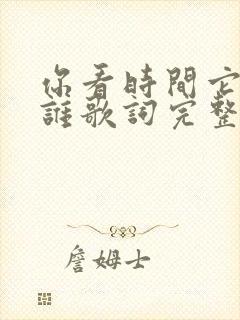 你看時間它
誰歌詞完整
詹姆士